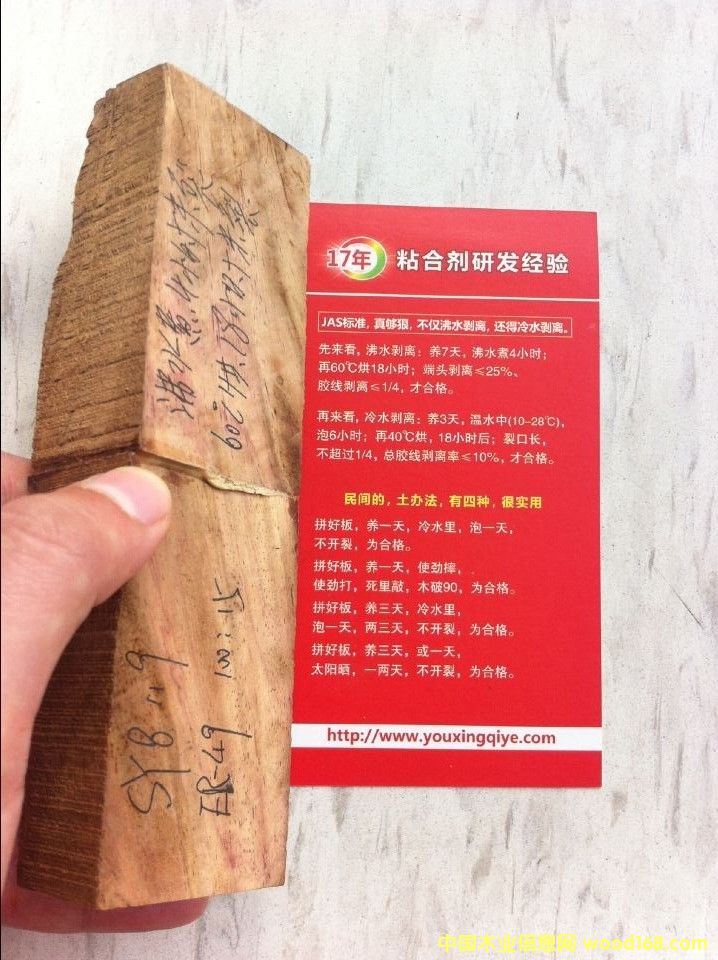 17年 粘合剂研发经验
JAS标准，真够狠，不仅沸水剥离，还得冷水剥离。
先来看，沸水剥离：养7天，沸水煮4小时；
再60℃烘18小时；端头剥离≤25%、
胶线剥离≤1/4，才合格。
再来看，冷水剥离：养3天，温水中(10-28℃)，
泡6小时；再40℃烘，18小时后；裂口长，
不超过1/4，总胶线剥离率≤10%，才合格。
民间的，土办法，有四种，很实用
拼好板，养一天，冷水里，泡一天，
不开裂，为合格。
拼好板，养一天，使劲摔，
使劲打，死里敲，木破90，为合格。
拼好板，养三天，冷水里，
泡一天，两三天，不开裂，为合格。
拼好板，养三天，或一天，
太阳晒，一两天，不开裂，为合格。
http://www.youxingqiye.com
沸水煮
602烘
SYB 119
100:15
中国木业信息网 wood168.com